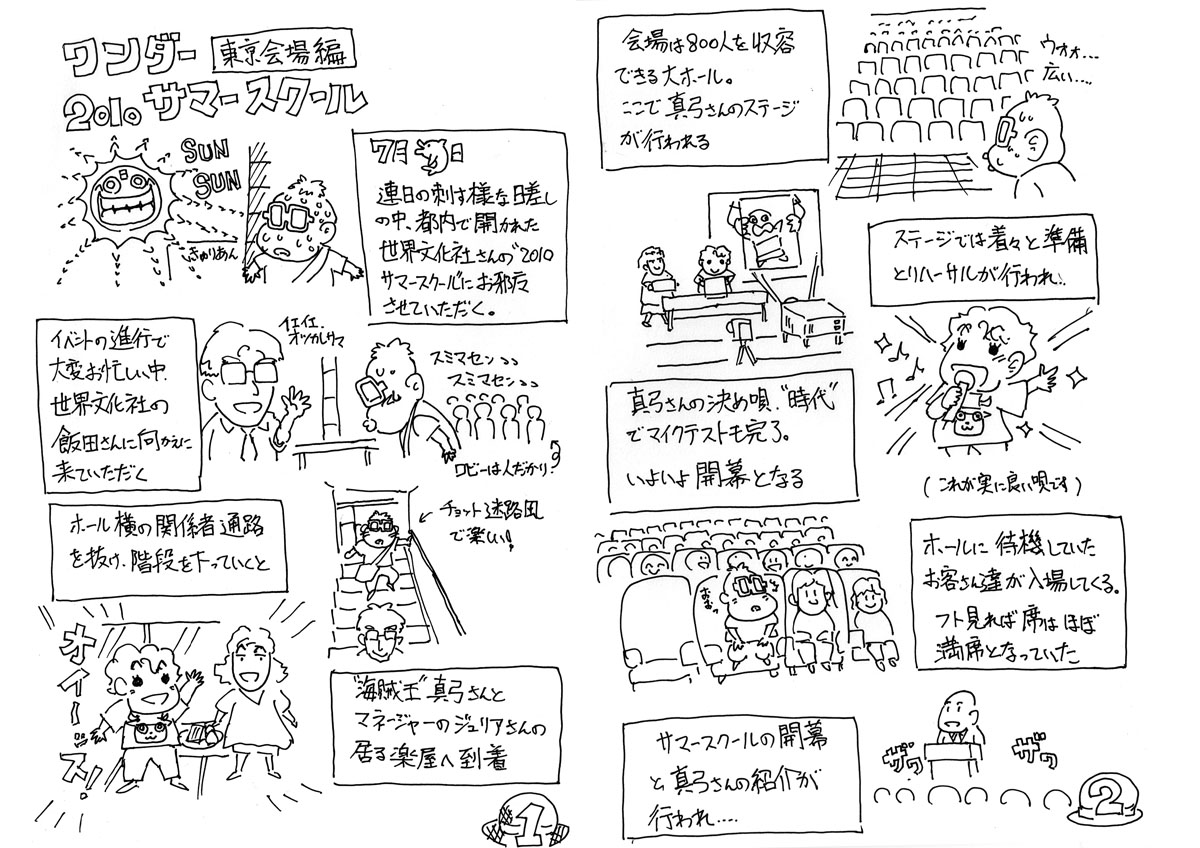 ワンダー
東京会場編
2010 サマースクール
SUN
SUN
しきゅりあん
7月 日
連日の刺す様な日差し
の中、都内で開かれた
世界文化社さんの"2010
サマースクール"にお邪魔
させていただく。
イベントの進行で
大変お忙しい中、
世界文化社の
飯田さんに向かえに
来ていただく
イエイエ、
オツカレサマ
スミマセン
スミマセン
ロビーは人だかり
ホール横の関係者通路
を抜け、階段を下っていくと
チョット迷路風
で楽しい!
オイーッス!
"海賊王"真弓さんと
マネージャーのジュリアさんの
居る楽屋へ到着
1
会場は800人を収容
できる大ホール。
ここで真弓さんのステージ
が行われる
ウォォ...
広い....
ステージでは着々と準備
とリハーサルが行われ..
真弓さんの決め唄、"時代"
でマイクテストも完了。
いよいよ開幕となる
(これが実に良い唄です)
ホールに待機していた
お客さん達が入場してくる。
フト見れば席はほぼ
満席となっていた
おおっ
サマースクールの開幕
と真弓さんの紹介が
行われ....
ザワ
ザワ
2